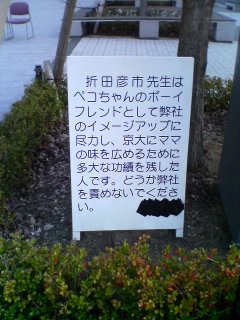 折田彦市先生は
ペコちゃんのボーイ
フレンドとして弊社
のイメージアップに
尽力し、京大にママ
の味を広めるために
多大な功績を残した
人です。どうか弊社
を責めないでくださ
い。